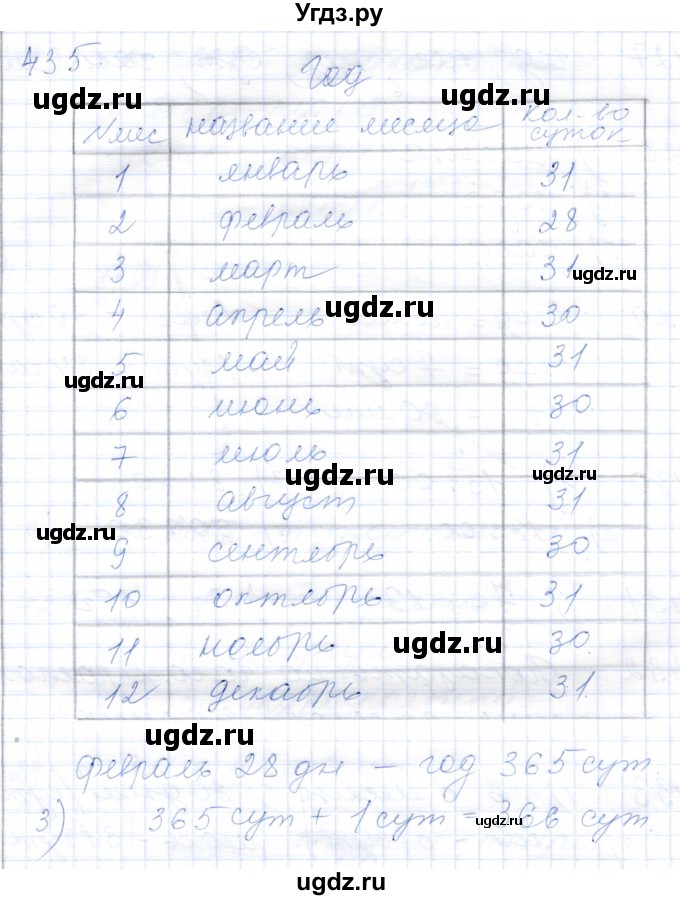 Угдз.ру
435
Год
ugdz.ru
№мес название месяца кол-во суток
1 январь 31
2 февраль 28
3 март 31
ugdz.ru
ugdz.ru
4 апрель 30
5 май 31
ugdz.ru
6 июнь 30
7 июль 31
ugdz.ru
ugdz.ru
8 август 31
ugdz.ru
9 сентябрь 30
10 октябрь 31
11 ноябрь 30
ugdz.ru
12 декабрь 31
ugdz.ru
февраль 28 дн – год 365 сут.
3) 365 сут + 1 сут = 366 сут.
ugdz.ru
ugdz.ru